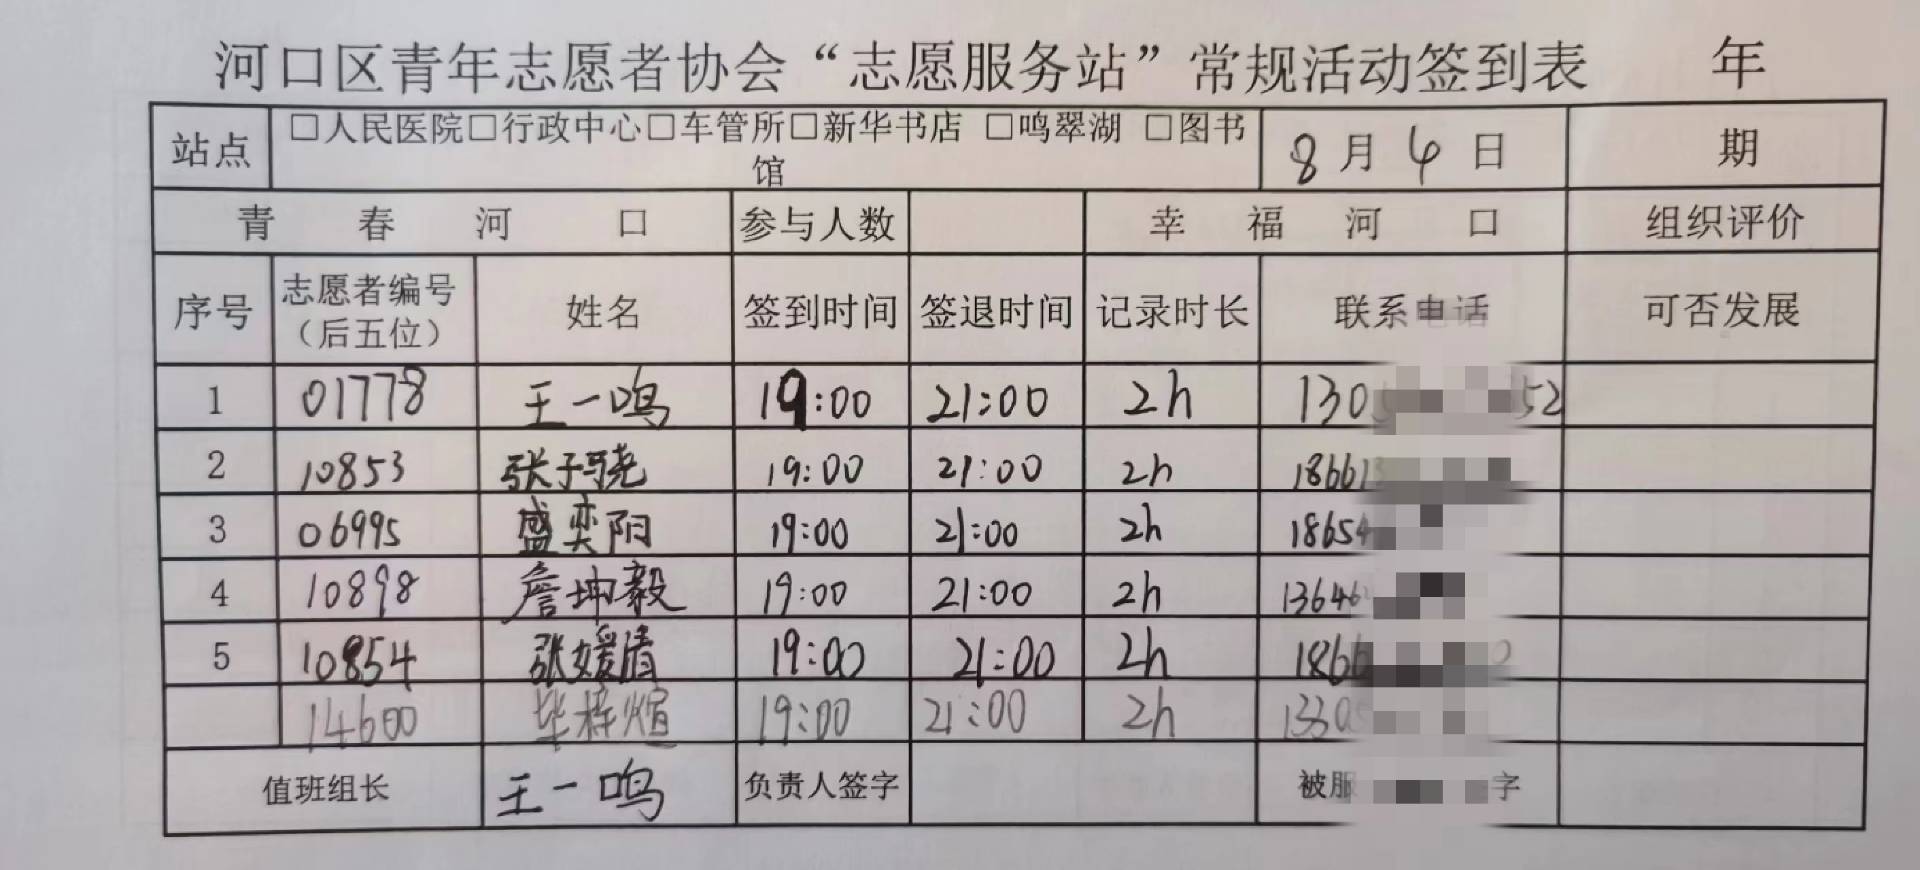 河口区青年志愿者协会“志愿服务站”常规活动签到表 年
站点 □人民医院□行政中心□车管所□新华书店 □鸣翠湖 □图书 8月4日 期
馆
青春河口 参与人数 幸福河口 组织评价
序号 志愿者编号 姓名 签到时间 签退时间 记录时长 联系电话 可否发展
（后五位）
1 01778 王一鸣 19:00 21:00 2h 130 52
2 10853 张子骁 19:00 21:00 2h 1866
3 06995 盛奕阳 19:00 21:00 2h 18654
4 10898 詹坤毅 19:00 21:00 2h 13646
5 10854 张媛清 19:00 21:00 2h 1866 0
14600 毕梓煊 19:00 21:00 2h 1330
值班组长 王一鸣 负责人签字 被服 字